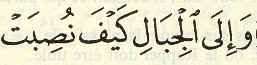 وَإِلَى ٱلْجِبَالِ كَيْفَ نُصِبَتْ